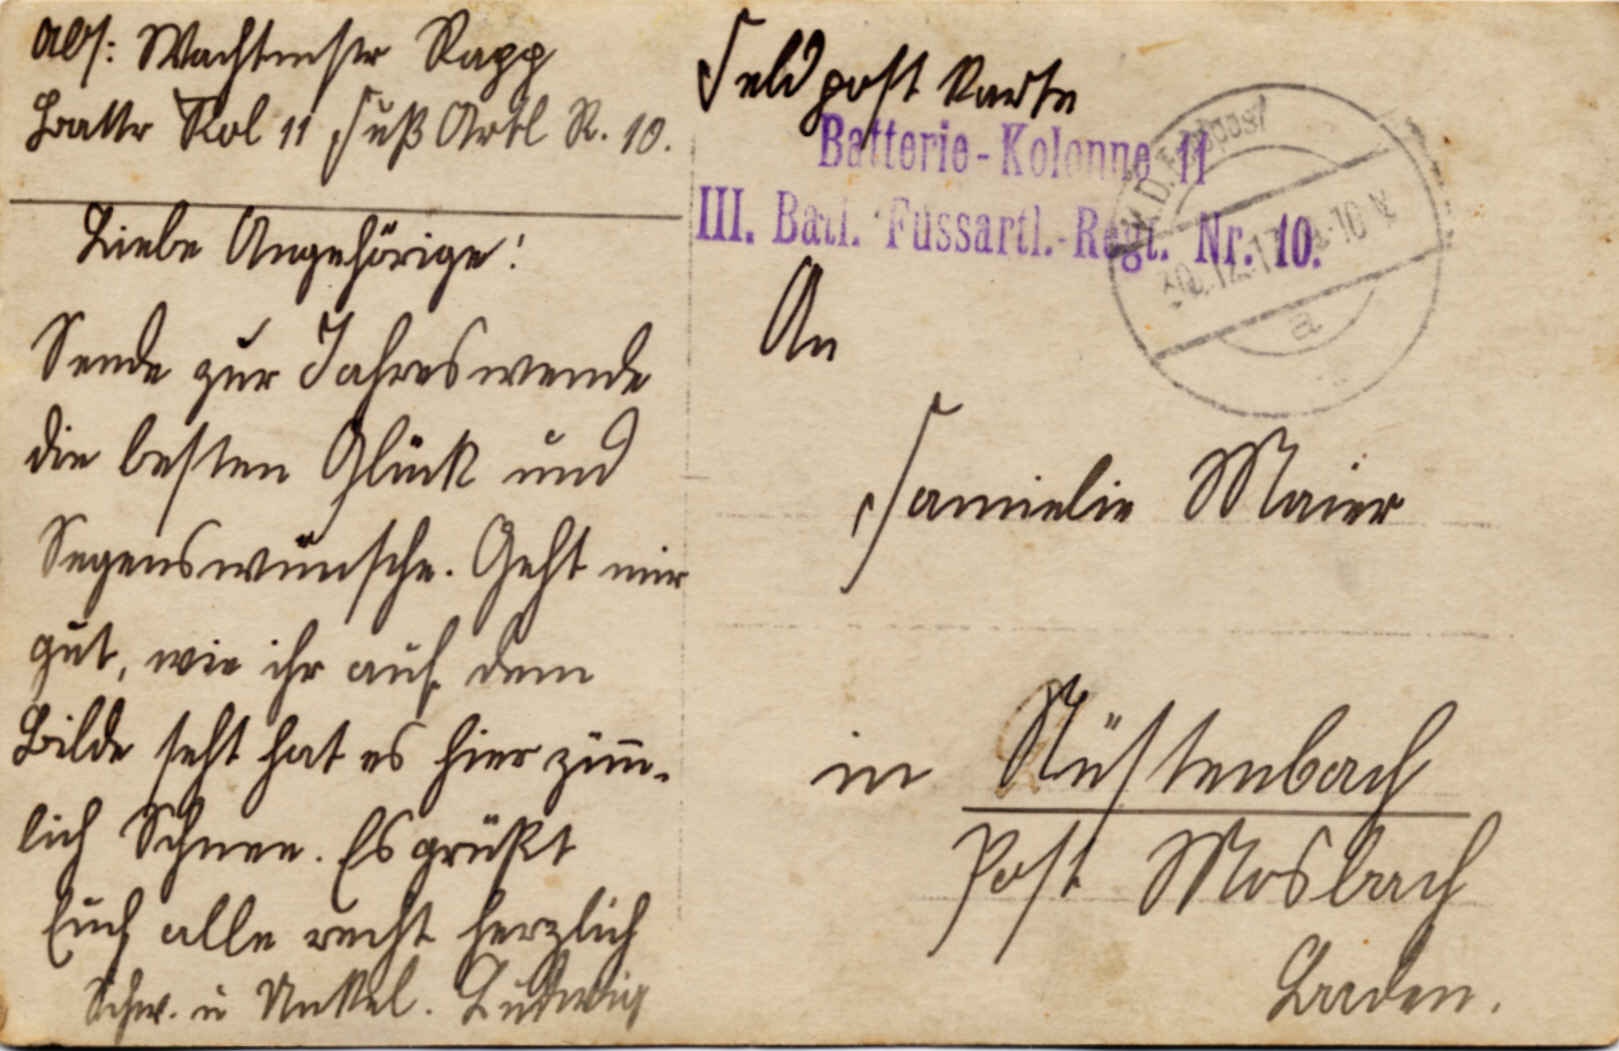 Abs: Wachtmstr Rapp
Battr Kol 11 Fuß Artl R. 10.
Liebe Angehörige!
Sende zur Jahreswende
die besten Glück und
Segenswünsche. Geht mir
gut, wie ihr auf dem
Bilde seht hat es hier zim̄-
lich Schnee. Es grüßt
Euch alle recht herzlich
Schw. u Unkel. Ludwig
Feldpost Karte
Batterie-Kolonne 11
III. Batl. Fussartl.-Regt. Nr. 10.
K.D. Feldpost
30.12.17. 9-10 V
a
An
Famielie Maier
in Nüstenbach
Post Mosbach
Baden.